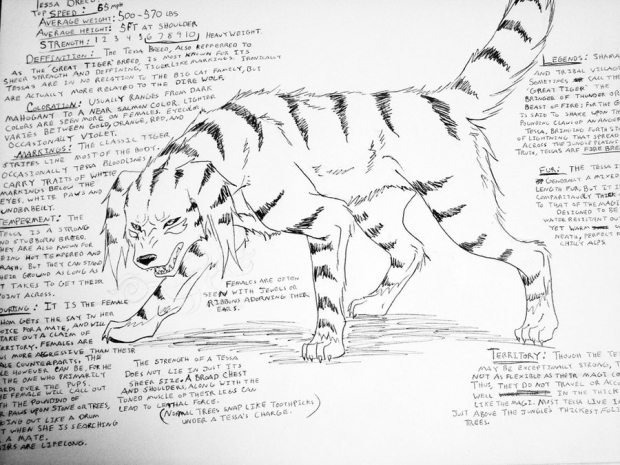 TESSA BREED
TOP SPEED: 65 mph
AVERAGE WEIGHT: 500-570 LBS
AVERAGE HEIGHT: 5FT AT SHOULDER
STRENGTH: 1 2 3 4 5 6 7 8 9 10 HEAVYWEIGHT.
DEFFINITION: THE TESSA BREED, ALSO REPPERRED TO
AS THE GREAT TIGER BREED IS MOST KNOWN FOR ITS
SHEER STRENGTH AND DEFFINING, TIGERLIKE MARKINGS. IRONICALLY
TESSAS ARE IN NO RELATION TO THE BIG CAT FAMILY, BUT
ARE ACTUALLY MORE RELATED TO THE DIRE WOLF.
COLORATION: USUALLY RANGES FROM DARK
MAHOGANY TO A NEAR SALMON COLOR. LIGHTER
COLORS ARE SEEN MORE ON FEMALES. EYECOLOR
VARIES BETWEEN GOLD, ORANGE, RED, AND
OCCASIONALLY VIOLET.
MARKINGS: THE CLASSIC TIGER
STRIPES LINE MOST OF THE BODY.
OCCASIONALLY TESSA BLOODLINES
CARRY TRAITS OF WHITE
MARKINGS BELOW THE
EYES, WHITE PAWS AND
UNDERBELLY.
TEMPERMENT: THE
TESSA IS A STRONG
AND STUBBORN BREED.
THEY ARE ALSO KNOWN FOR
BEING HOT TEMPERED AND
BUT THEY CAN STAND
THEIR GROUND AS LONG AS
IT TAKES TO GET THEIR
POINT ACROSS.
IT IS THE FEMALE
WHOM GETS THE SAY IN HER
CHOICE FOR A MATE, AND WILL
TAKE OUT A CLAIM OF
TERRITORY. FEMALES ARE
MORE AGRESSIVE THAN THEIR
MALE COUNTERPARTS. THE
HOWEVER CAN BE, FOR HE
THE ONE WHO PRIMARILY
ONE THE PUPS.
THE FEMALE WILL CALL OUT
WITH THE POUNDING OF
HER PAWS UPON STONE OR TREES,
OUT LIKE A DRUM
WHEN SHE IS SEARCHING
A MATE.
PAIRS ARE LIFELONG.
FEMALES ARE OFTEN
SEEN WITH JEWELS OR
RIBBONS ADORNING THEIR
EARS.
THE STRENGTH OF A TESSA
DOES NOT LIE IN JUST ITS
SHEER SIZE. A BROAD CHEST
AND SHOULDERS, ALONG WITH THE
TONED MUSCLE OF THEIR LEGS CAN
LEAD TO LETHAL FORCE.
(NORMAL TREES SNAP LIKE TOOTHPICKS
UNDER A TESSA'S CHARGE.)
LEGENDS: SHAMA
AND TRIBAL VILLAG
SOMETIMES CALL THE
"GREAT TIGER" THE
BRINGER OF THUNDER OR
BEAST OF FIRE; FOR THE G
IS SAID TO SHAKE UPON TH
POUNDING CLAW OF AN ANGR
TESSA, BRINGING FORTH S
OF LIGHTNING THAT SPREAD
ACROSS THE JUNGLE PLAIN
TRUTH, TESSAS ARE FIRE BREA
FUR: THE TESSA I
GENERALLY A MIXED
LENGTH FUR. BUT IT I
COMPARITAVELY THICK
TO THAT OF THE MAGI
DESIGNED TO BE
WATER RESISTENT OU
YET WARM
HEATS, PERFECT F
CHILLY ALPS.
TERRITORY: THOUGH THE TE
MAY BE EXCEPTIONALLY STRONG, T
NOT AS FLEXIBLE AS THEIR MAGI CO
THUS, THEY DO NOT TRAVEL OR ACC
WELL IN THE THICK
LIKE THE MAGI. MOST TESSA LIVE I
JUST ABOVE THE JUNGLE'S THICKEST FOLI
TREES.